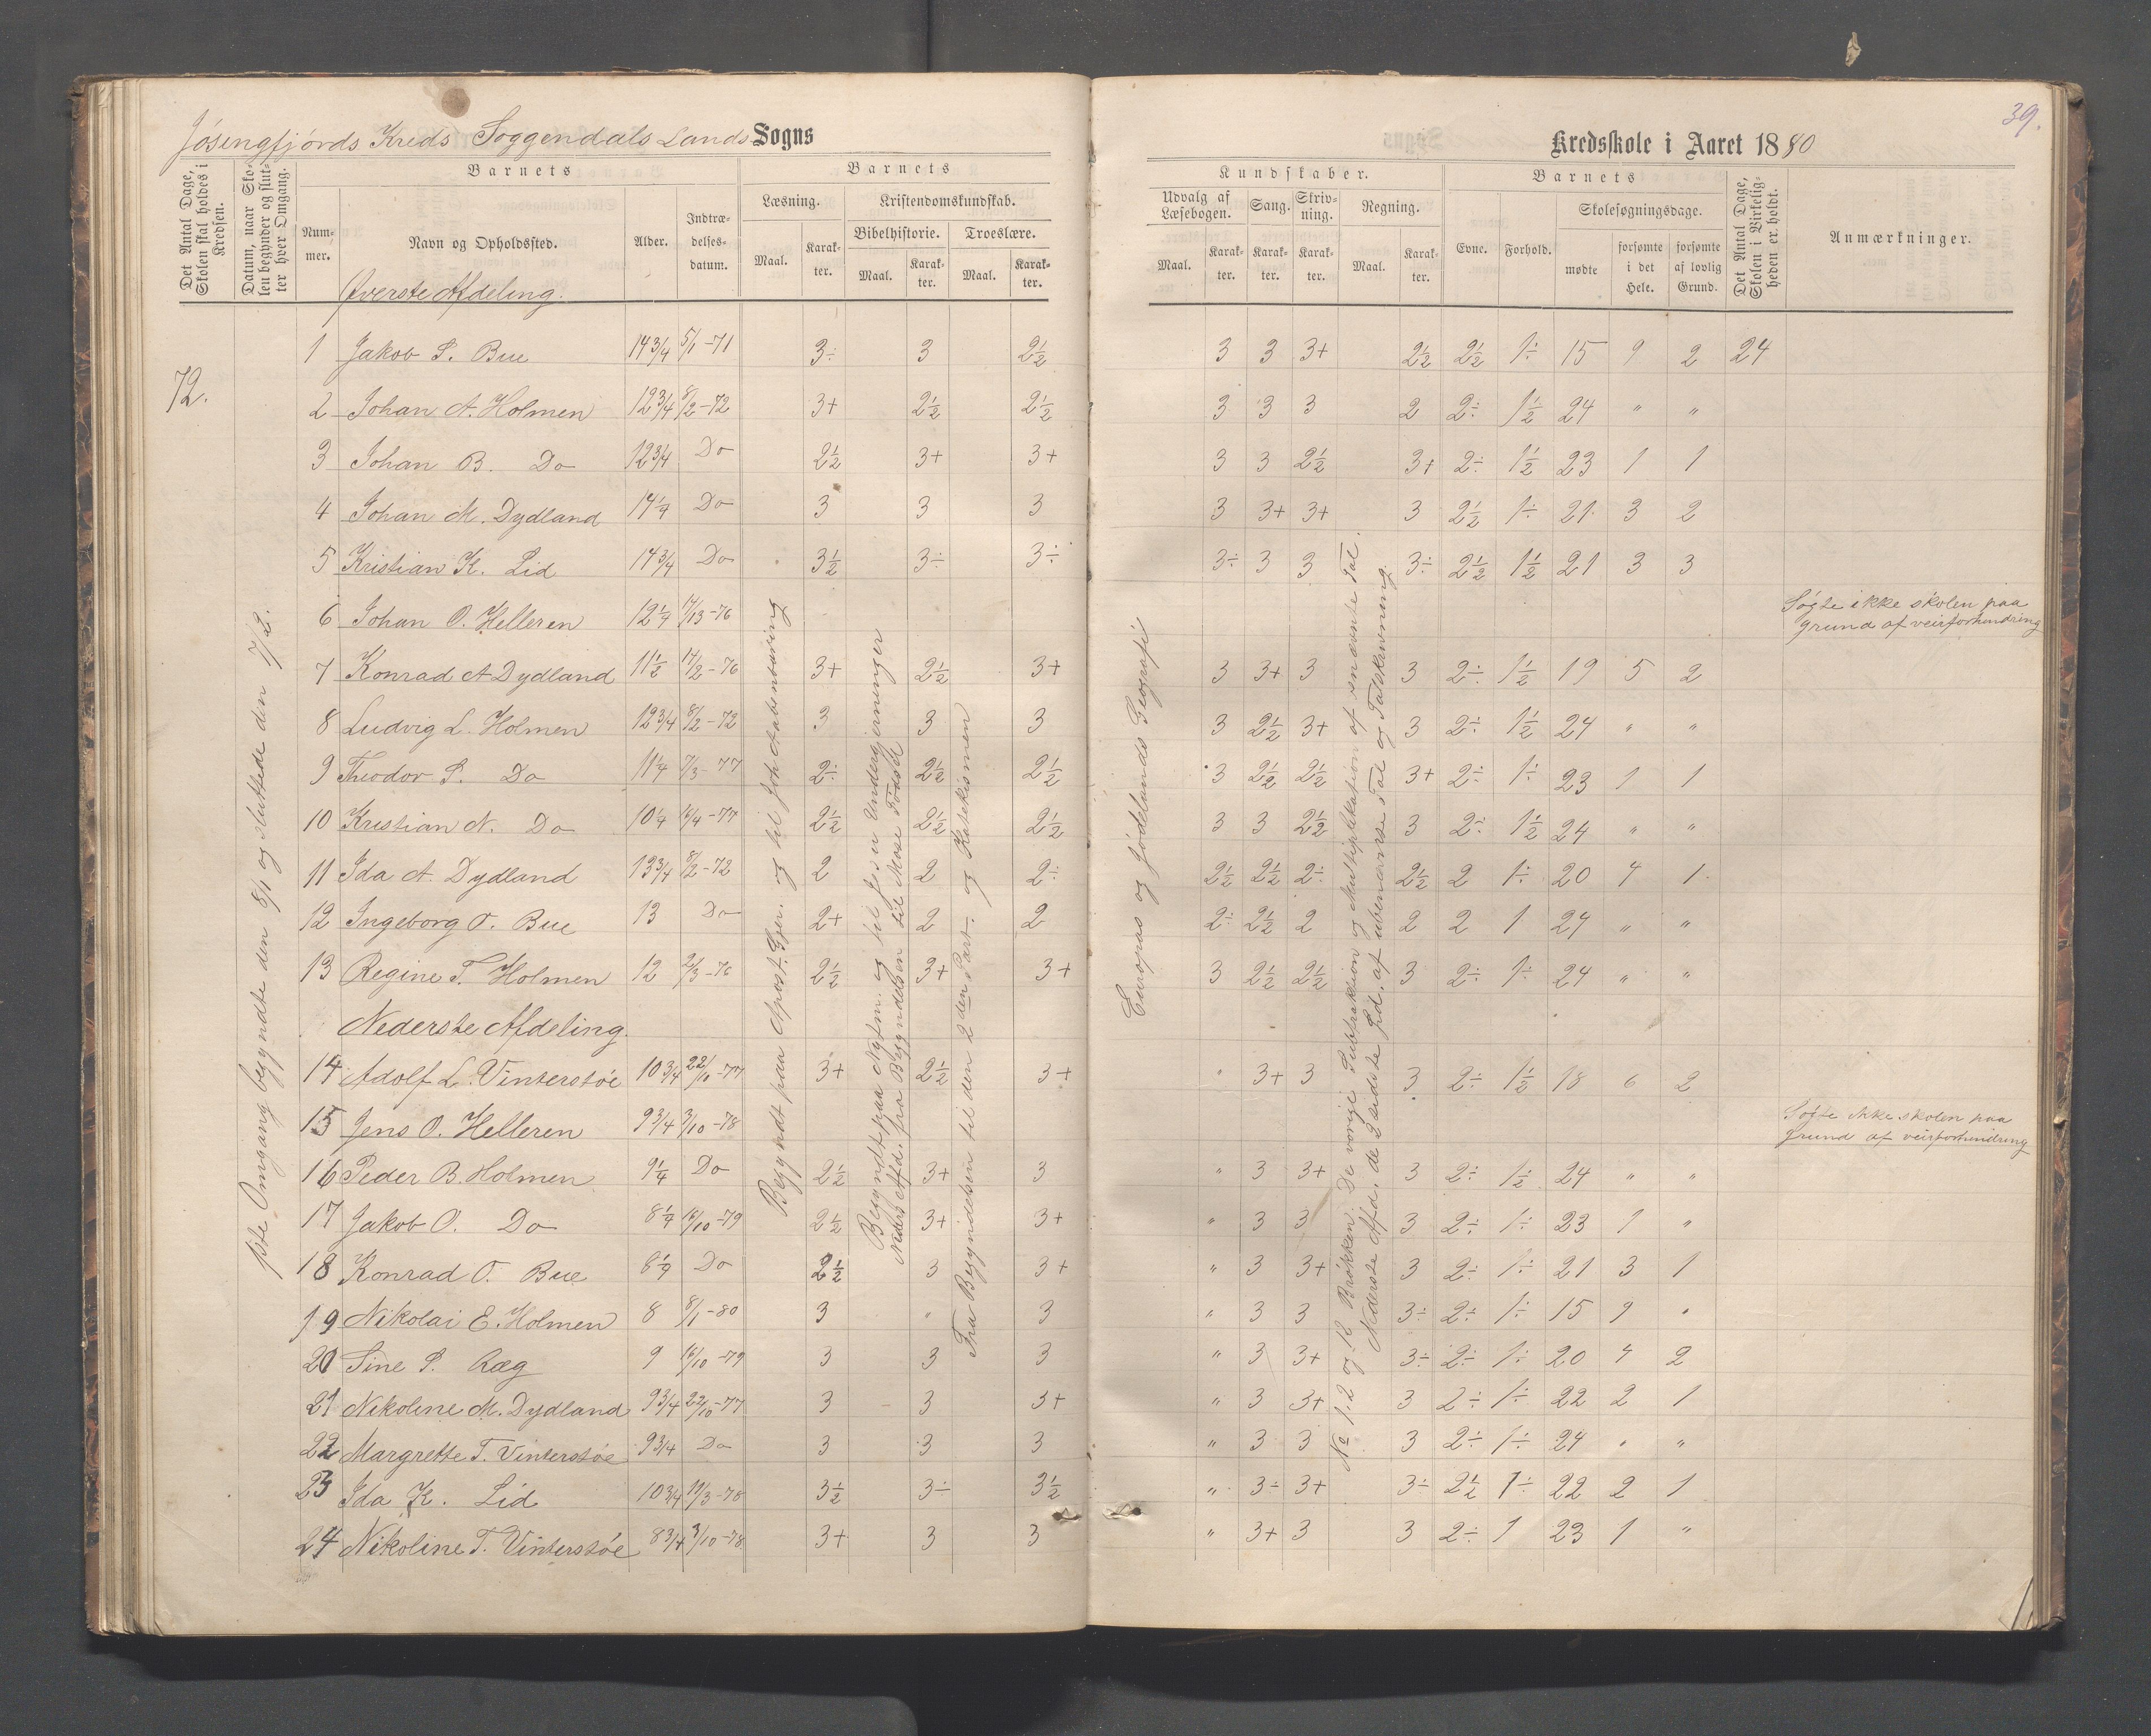 39.
Jøsingfjørds Kreds Soggendals Lands Sogns
Kredsskole i Aaret 1880
Det Antal Dage, Skolen skal holdes i Kredsen.
Datum, naar Skolen begynder og slutter hver Omgang.
Barnets
Nummer.
Navn og Opholdssted.
Alder.
Indtrædelsesdatum.
Barnets
Læsning.
Maal.
Karakter.
Kristendomskundskab.
Bibelhistorie.
Maal.
Karakter.
Troeslære.
Maal.
Karakter.
Kundskaber.
Udvalg af Læsebogen.
Maal.
Karakter.
Sang.
Karakter.
Skrivning.
Karakter.
Regning.
Maal.
Karakter.
Barnets
Evne.
Forhold.
Skolesøgningsdage.
mødte
forsømte i det Hele.
forsømte af lovlig Grund.
Det Antal Dage, Skolen i Virkeligheden er holdt.
Anmærkninger.
Øverste Afdeling.
72.
1ste Omgang begyndte den 8/1 og sluttede den 7/2.
1 Jakob S. Bue 14 3/4 5/1-71 3÷ 3 2½ 3 3 3+ 2½ 2½ 1÷ 15 9 2 24
2 Johan A. Holmen 12 3/4 8/2-72 3+ 2½ 2½ 3 3 3 2 2÷ 1½ 24 " "
3 Johan B. Do 12 3/4 Do 2½ 3+ 3+ 3 3 2½ 3+ 2÷ 1½ 23 1 1
4 Johan M. Dydland 14 1/4 Do 3 3 3 3 3+ 3+ 3 2½ 1÷ 21 3 2
5 Kristian K. Lid 14 3/4 Do 3½ 3÷ 3÷ 3÷ 3 3 3÷ 2½ 1½ 21 3 3
6 Johan O. Helleren 12 1/4 Søgte ikke skolen paa grund af veirforhindring
7 Konrad A Dydland 11½ 14/2-76 3+ 2½ 3+ 3 3+ 3 3 2÷ 1½ 19 5 2
8 Ludvig L. Holmen 12 3/4 8/2-72 3 3 3 3 2½ 3+ 3 2÷ 1½ 24 " "
9 Theodor S. Do 11 1/4 7/3-77 2÷ 2½ 2½ 3 2½ 2½ 3+ 2÷ 1÷ 23 1 1
10 Kristian N. Do 10 1/4 16/4-77 2½ 2½ 2½ 3 3 2½ 3 2÷ 1½ 24 " "
11 Ida A. Dydland 13 3/4 8/2-72 2 2 2÷ 2½ 2½ 2÷ 2½ 2 1÷ 20 4 1
12 Ingeborg O. Bue 13 Do 2+ 2 2 2÷ 2½ 2 2 2 1 24 " "
13 Regine T. Holmen 12 2/3-76 2½ 3+ 3+ 3 2½ 2½ 3 2÷ 1÷ 24 " "
Nederste Afdeling.
14 Adolf L. Vinterstøe 10 3/4 22/10-77 3+ 2½ 3+ " 3+ 3 3 2÷ 1½ 18 6 2
15 Jens O. Helleren 9 3/4 3/10-78 Søgte ikke skolen paa grund af veirforhindring
16 Peder B. Holmen 9 1/4 Do 2½ 3+ 3 " 3 3+ 3 2÷ 1½ 24 " "
17 Jakob O. Do 8 1/4 16/10-79 2½ 3+ 3+ " 3 3 3 2÷ 1÷ 23 1 "
18 Konrad O. Bue Do 2½ 3 3+ " 3 3+ 3 2÷ 1÷ 21 3 1
19 Nikolai E. Holmen 8 8/1-80 3 " 3 " 3 3 3÷ 2÷ 1÷ 15 9 "
20 Sine S. Ræg 9 16/10-79 3 3 3 " 3 3+ 3÷ 2÷ 1÷ 20 4 2
21 Nikoline M. Dydland 9 3/4 22/10-77 3 3 3+ " 3 3+ 3 2÷ 1÷ 22 2 1
22 Margrette T. Vinterstøe 9 3/4 Do 3 3 3 " 3 3 3 2÷ 1÷ 24 " "
23 Ida K. Lid 10 3/4 19/3-78 3½ 3÷ 3½ " 3÷ 3+ 3÷ 2½ 1÷ 22 2 1
24 Nikoline T. Vinterstøe 8 3/4 3/10-78 3+ 3 3 " 3+ 3 3 2÷ 1 23 1 "
Begyndt paa Apost. Gjer. og til Joh Aabenbaring
Begyndt paa og til Jesu Undergjerninger
Neders Afd. fra Begyndelsen til Mose Fødsel
Fra Begyndelsen til den 2den Part. og Katekismen
Europas og Jødelands Geografi
No 1. 2 og 12 Brøkken. De vorige Subtraktion og Multiplikation af enævnte Tal.
Nederste Afd. de 2 sidste Præd. af ubenævnte Tal og Talskrivning.